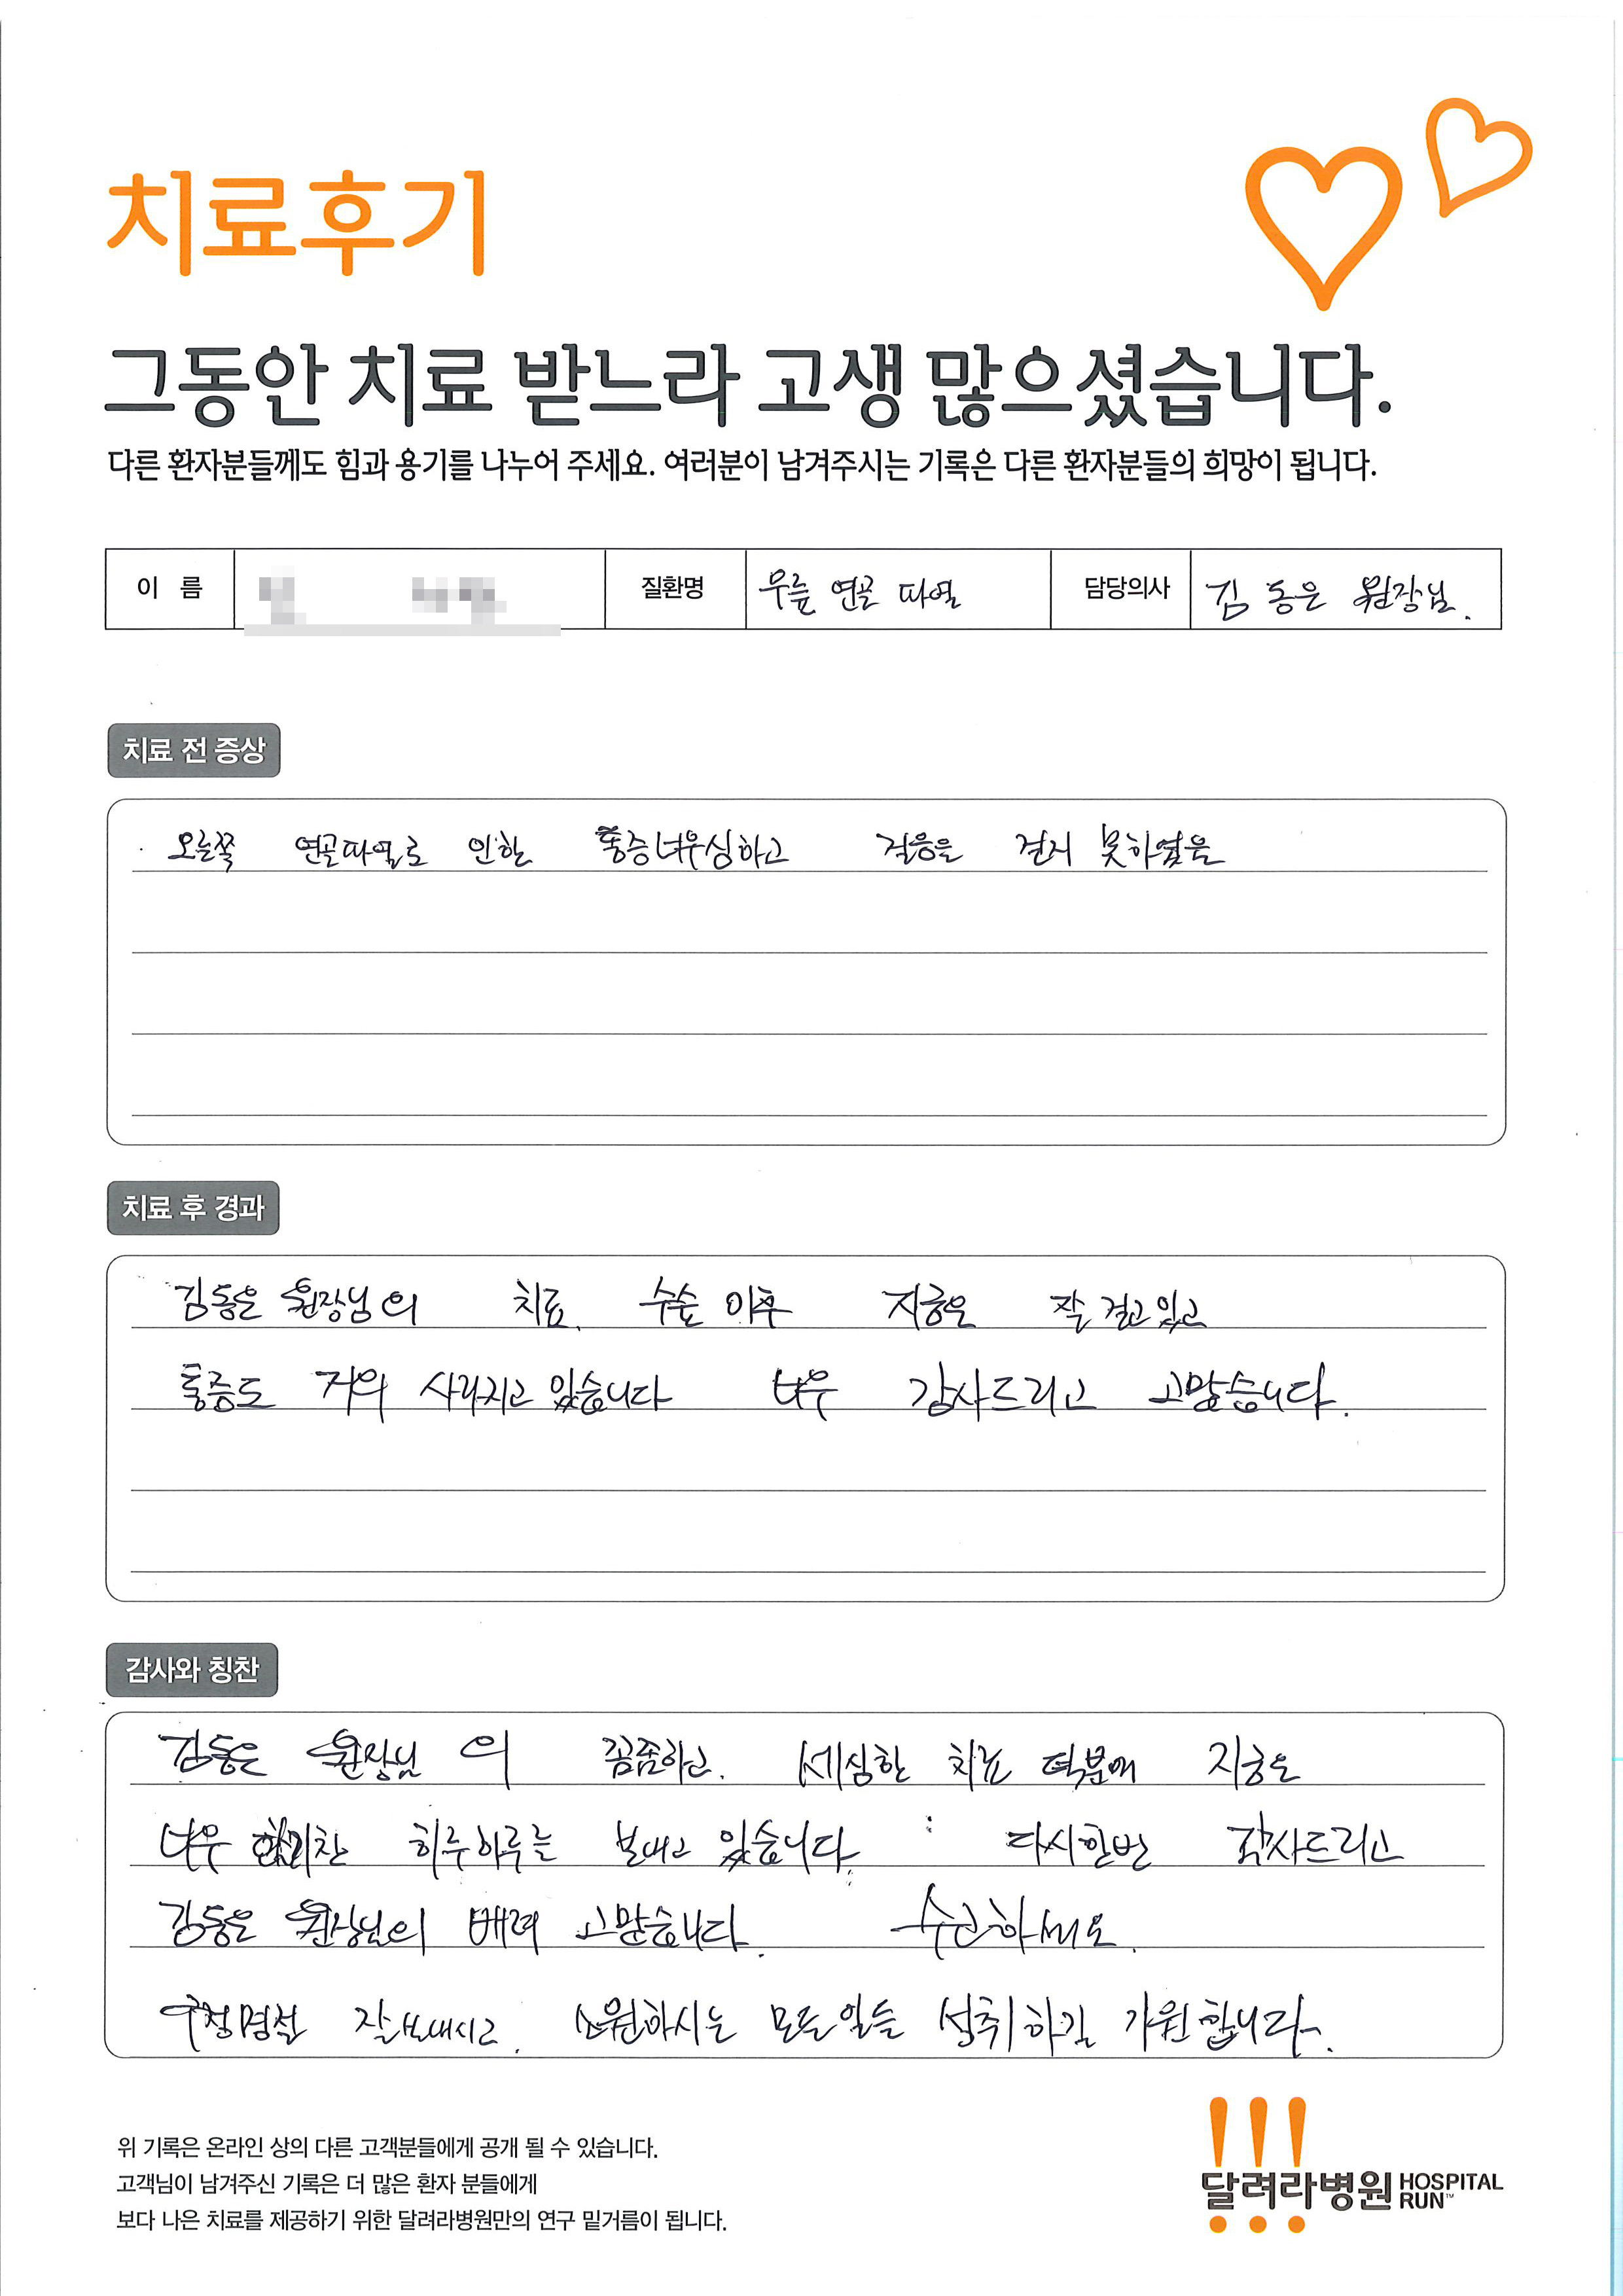 치료후기
그동안 치료 받느라 고생 많으셨습니다.
다른 환자분들께도 힘과 용기를 나누어 주세요. 여러분이 남겨주시는 기록은 다른 환자분들의 희망이 됩니다.
이 름 질환명 무릎 연골 파열 담당의사 김동은 원장님.
치료 전 증상
오른쪽 연골파열로 인한 통증너무심하고 걸음을 걷지 못하였음
치료 후 경과
김동은 원장님의 치료. 수술 이후 지금은 잘 걷고있고
통증도 거의 사라지고 있습니다 너무 감사드리고 고맙습니다.
감사와 칭찬
김동은 원장님의 꼼꼼하고. 세심한 치료 덕분에 지금은
너무 힘찬 하루하루를 보내고 있습니다. 다시한번 감사드리고
김동은 원장님의 배려 고맙습니다. 수고하세요.
구정명절 잘보내시고. 소원하시는 모든일들 성취하길 기원합니다.
위 기록은 온라인 상의 다른 고객분들에게 공개 될 수 있습니다.
고객님이 남겨주신 기록은 더 많은 환자 분들에게
보다 나은 치료를 제공하기 위한 달려라병원만의 연구 밑거름이 됩니다.
달려라병원 HOSPITAL RUN™